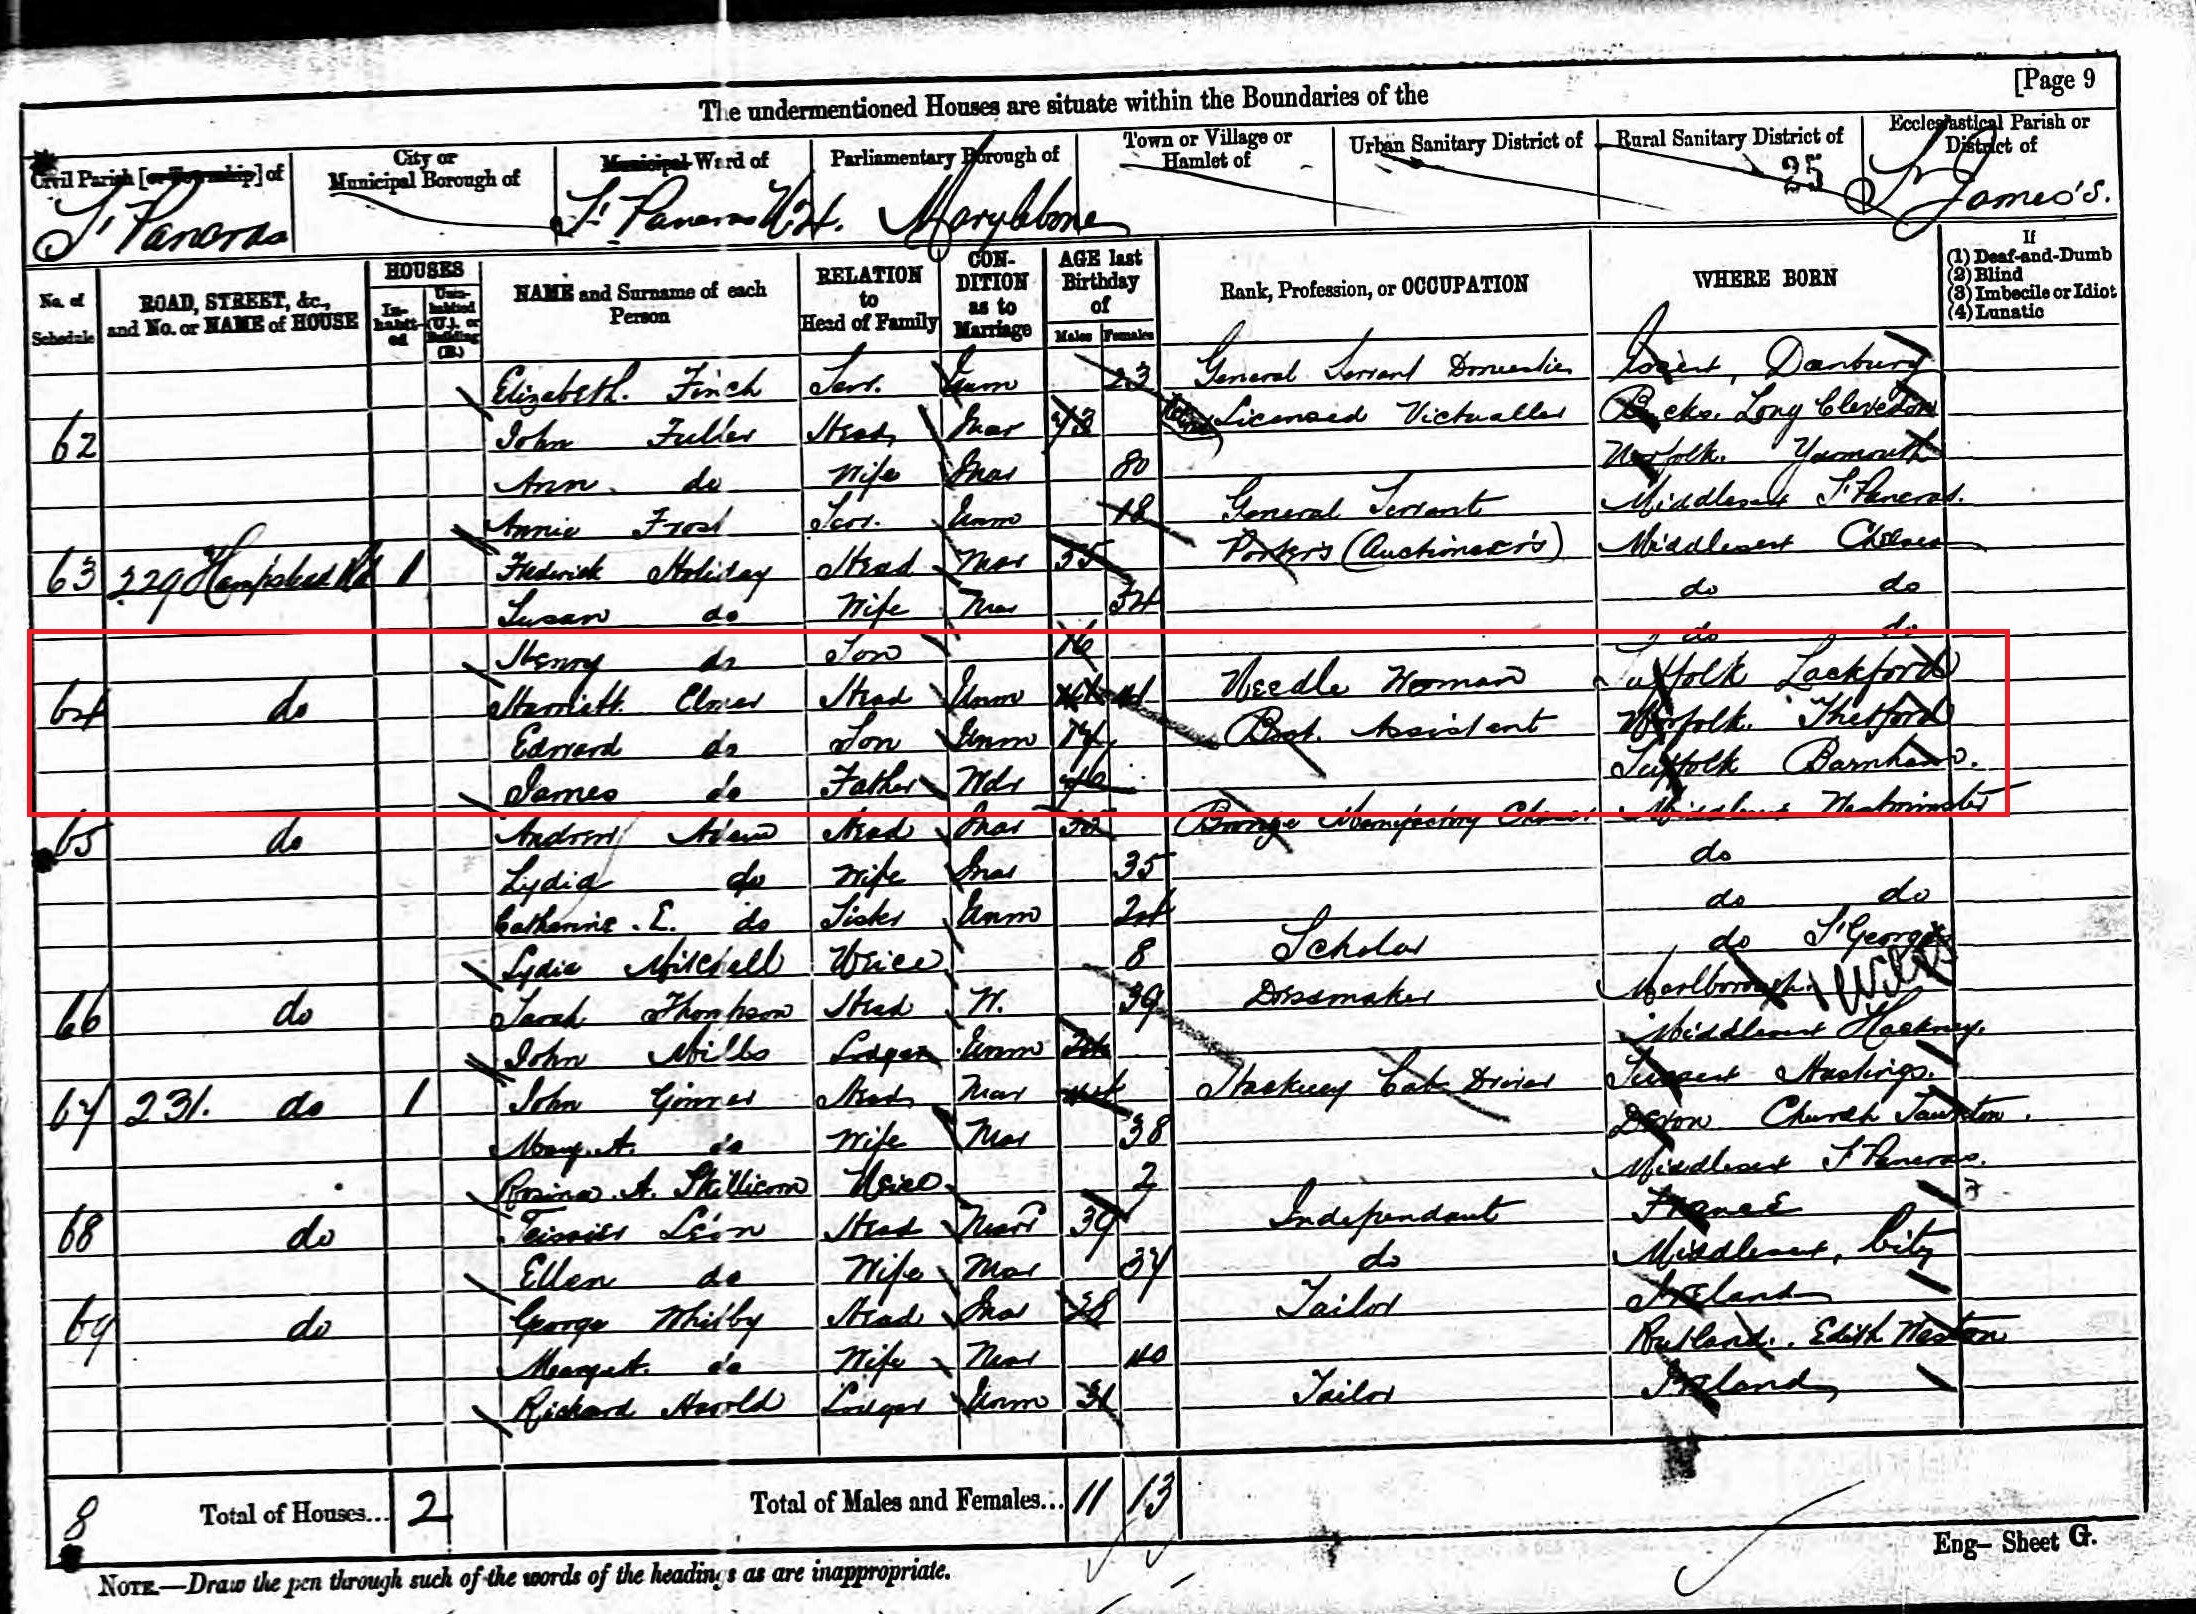 [Page 9
The undermentioned Houses are situate within the Boundaries of the
Civil Parish [or Township] of
City or Municipal Borough of
Municipal Ward of
Parliamentary Borough of
Town or Village or Hamlet of
Urban Sanitary District of
Rural Sanitary District of
Ecclesiastical Parish or District of
St Pancras
St Pancras
Marylebone
25
St James's.
No. of Schedule
ROAD, STREET, &c., and No. or NAME of HOUSE
HOUSES
In-habit-ed
Unin-habited (U.), or Building (B.)
NAME and Surname of each Person
RELATION to Head of Family
CON-DITION as to Marriage
AGE last Birthday of
Males
Females
Rank, Profession, or OCCUPATION
WHERE BORN
If
(1) Deaf-and-Dumb
(2) Blind
(3) Imbecile or Idiot
(4) Lunatic
Elizabeth Finch Serv. Unm 23 General Servant Domestic Essex, Danbury
62 John Fuller Head Mar 73 Licensed Victualler Bucks. Long
Ann do Wife Mar 80 Norfolk. Yarmouth
Annie Frost Serv. Unm 18 General Servant Middlesex St Pancras.
63 229 Hampstead Rd 1 Frederick Holiday Head Mar 35 Porter's (Auctioneer's) Middlesex Chelsea
Susan do Wife Mar 34 do do
Henry do Son 16 do do
64 do Harriett Elmer Head Unm 44 Needle Woman Suffolk Lackford
Edward do Son Unm 17 Assistant Norfolk. Thetford
James do Father Wdr Suffolk Barnham.
65 do Andrew Adam Head Mar Manufactory Middlesex Westminster
Lydia do Wife Mar 35 do
Catherine. E. do Sister Unm 24 do do
Lydia Mitchell Neice 8 Scholar do St Georges
66 do Sarah Thompson Head W. 39 Dressmaker Marlborough.
John Mills Lodger Unm Middlesex Hackney.
67 231. do 1 John Head Mar 44 Hackney Cab Driver Sussex Hastings.
Mary. A. do Wife Mar 38 Devon Church
Rosina. A. Neice 2 Middlesex St Pancras.
68 do Teissier Léon Head Marr 39 Independant France
Ellen do Wife Mar 37 do Middlesex, City
69 do George Whitby Head Mar 38 Tailor Ireland
Margt. do Wife Mar 40 Rutland. Edith Weston
Richard Harold Lodger Unm 31 Tailor Ireland
8 Total of Houses... 2 Total of Males and Females... 11 13
Eng— Sheet G.
NOTE.—Draw the pen through such of the words of the headings as are inappropriate.